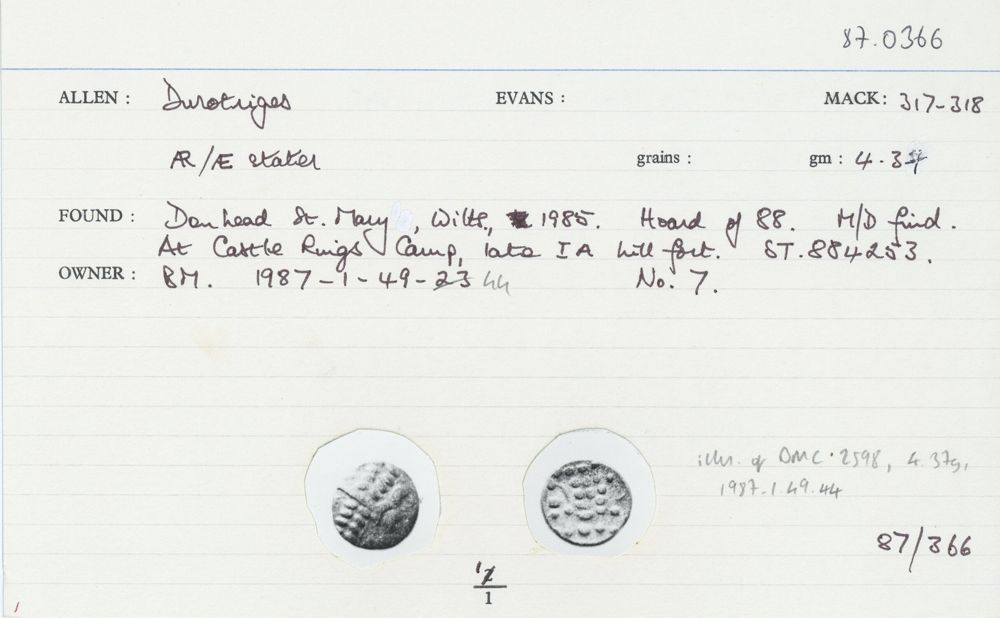 87.0366
ALLEN : Durotriges EVANS : MACK: 317-318
AR/Æ stater grains : gm : 4.37
FOUND : Donhead St. Mary, Wilts., 1985. Hoard of 88. M/D find.
At Castle Rings Camp, late IA hill fort. ST.884253.
OWNER : BM. 1987-1-49-23 44 No. 7.
illus. of BMC.2598, 4.37g,
1987.1.49.44
87/366
1
1